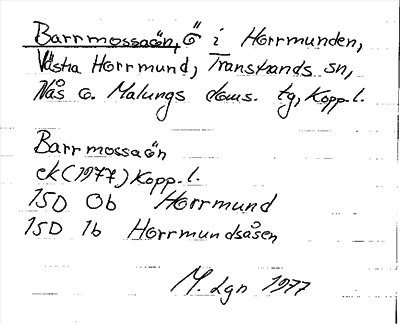 Barrmossaön, ö i Horrmunden,
Västra Horrmund, Transtrands sn,
Nås o. Malungs doms. tg, Kopp.l.
Barrmossaön
ek (1977) Kopp.l.
15D 0b Horrmund
15D 1b Horrmundsåsen
M. Lgn 1977